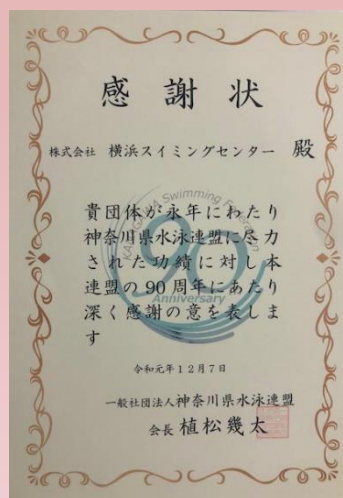 感謝状
株式会社 横浜スイミングセンター 殿
貴団体が永年にわたり
神奈川県水泳連盟に尽力
された功績に対し本
連盟の90周年にあたり
深く感謝の意を表しま
す
KANAGAWA Swimming Federation
90
Anniversary
令和元年12月7日
一般社団法人神奈川県水泳連盟
会長 植松幾太